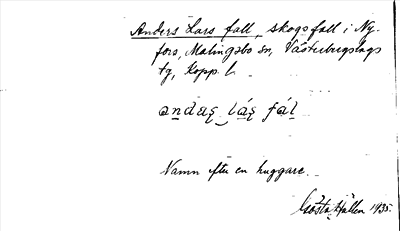 Anders Lars fall, skogsfall i Ny-
fors, Malingsbo sn, Västerbergslags
tg, Kopp. l.
andaʂ lάʂ fál
Namn efter en huggare.
Gösta Hallen 1935.